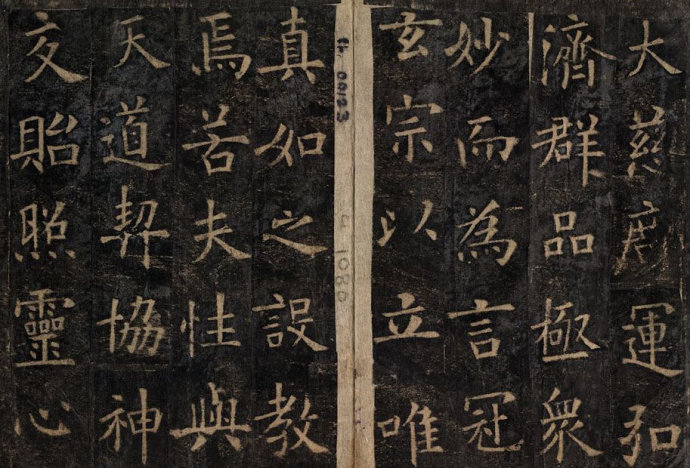 大慈廣運弘
濟群品極衆
妙而為言冠
玄宗以立唯
真如之設教
焉若夫性與
天道契協神
交貽照靈心
Ch. 00123
1080